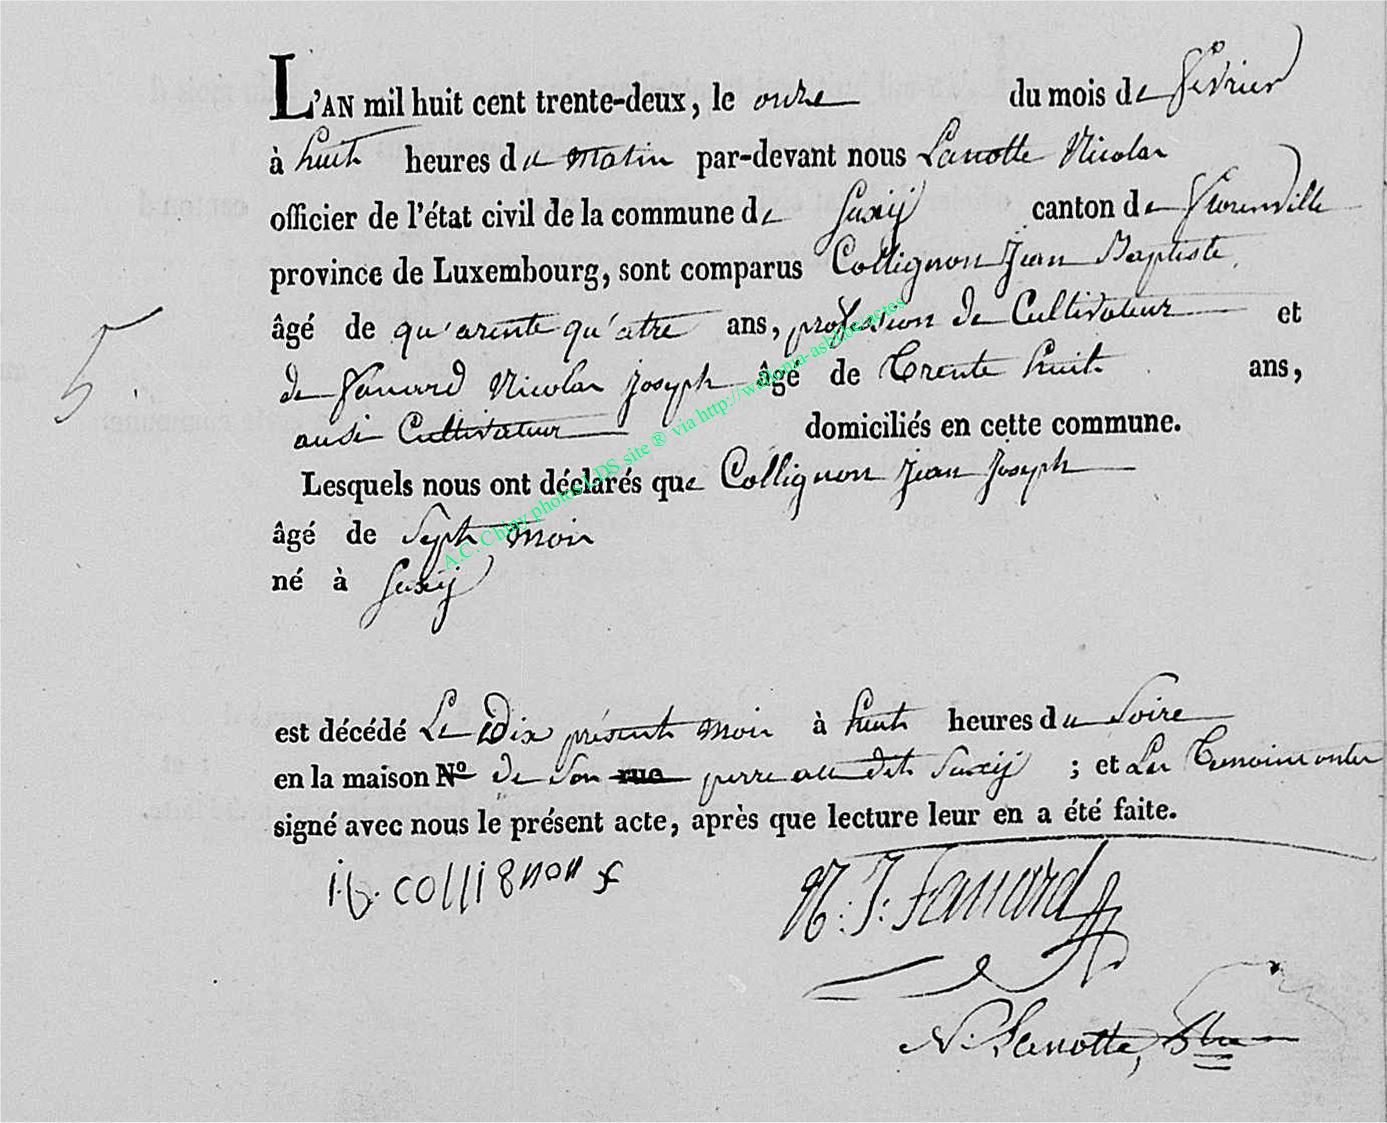 L'AN mil huit cent trente-deux, le onze du mois de fevrier
à huit heures du matin par-devant nous Lanotte Nicolas
officier de l'état civil de la commune de Suxÿ canton de florenville
province de Luxembourg, sont comparus Collignon Jean Baptiste,
âgé de qu'arente qu'atre ans, profession de Cultivateur et
de fanard Nicolas Joseph âgé de trente huit ans,
5.
ausi Cultivateur domiciliés en cette commune.
Lesquels nous ont déclarés que Collignon Jean Joseph
âgé de Septh mois
né à Suxÿ
est décédé Le Dix présent mois à huit heures du Soire
en la maison Nº de Son rue perre au dit Suxÿ ; et Les temoins onter
signé avec nous le présent acte, après que lecture leur en a été faite.
i.b. collignon
N: J: fanard
N. Lanotte,
A.C. Chiny photos LDS site ® via http://wallonia-asbl.be/actes